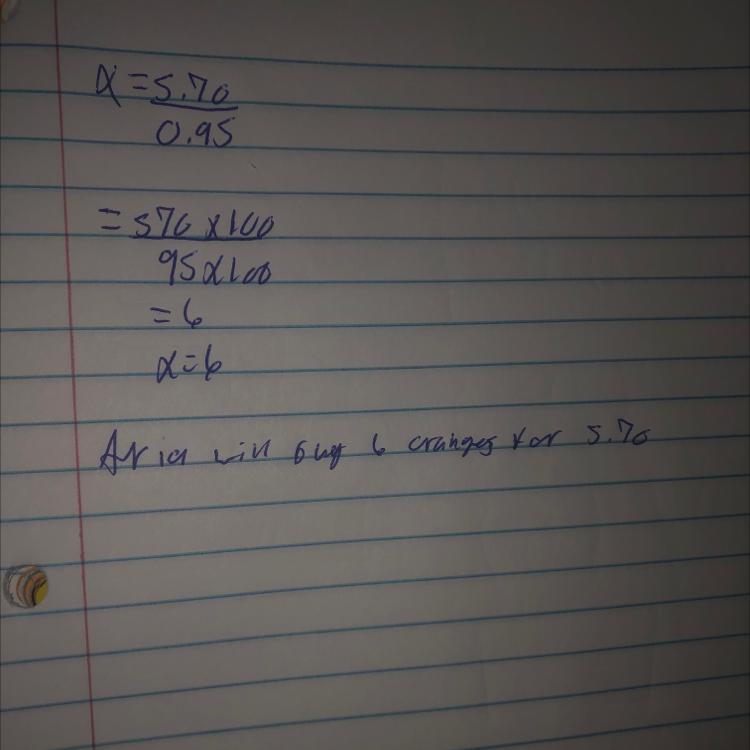 x = 5.70
0.95
= 570 x 100
95 x 100
= 6
x = 6
Aria will buy 6 oranges for 5.70